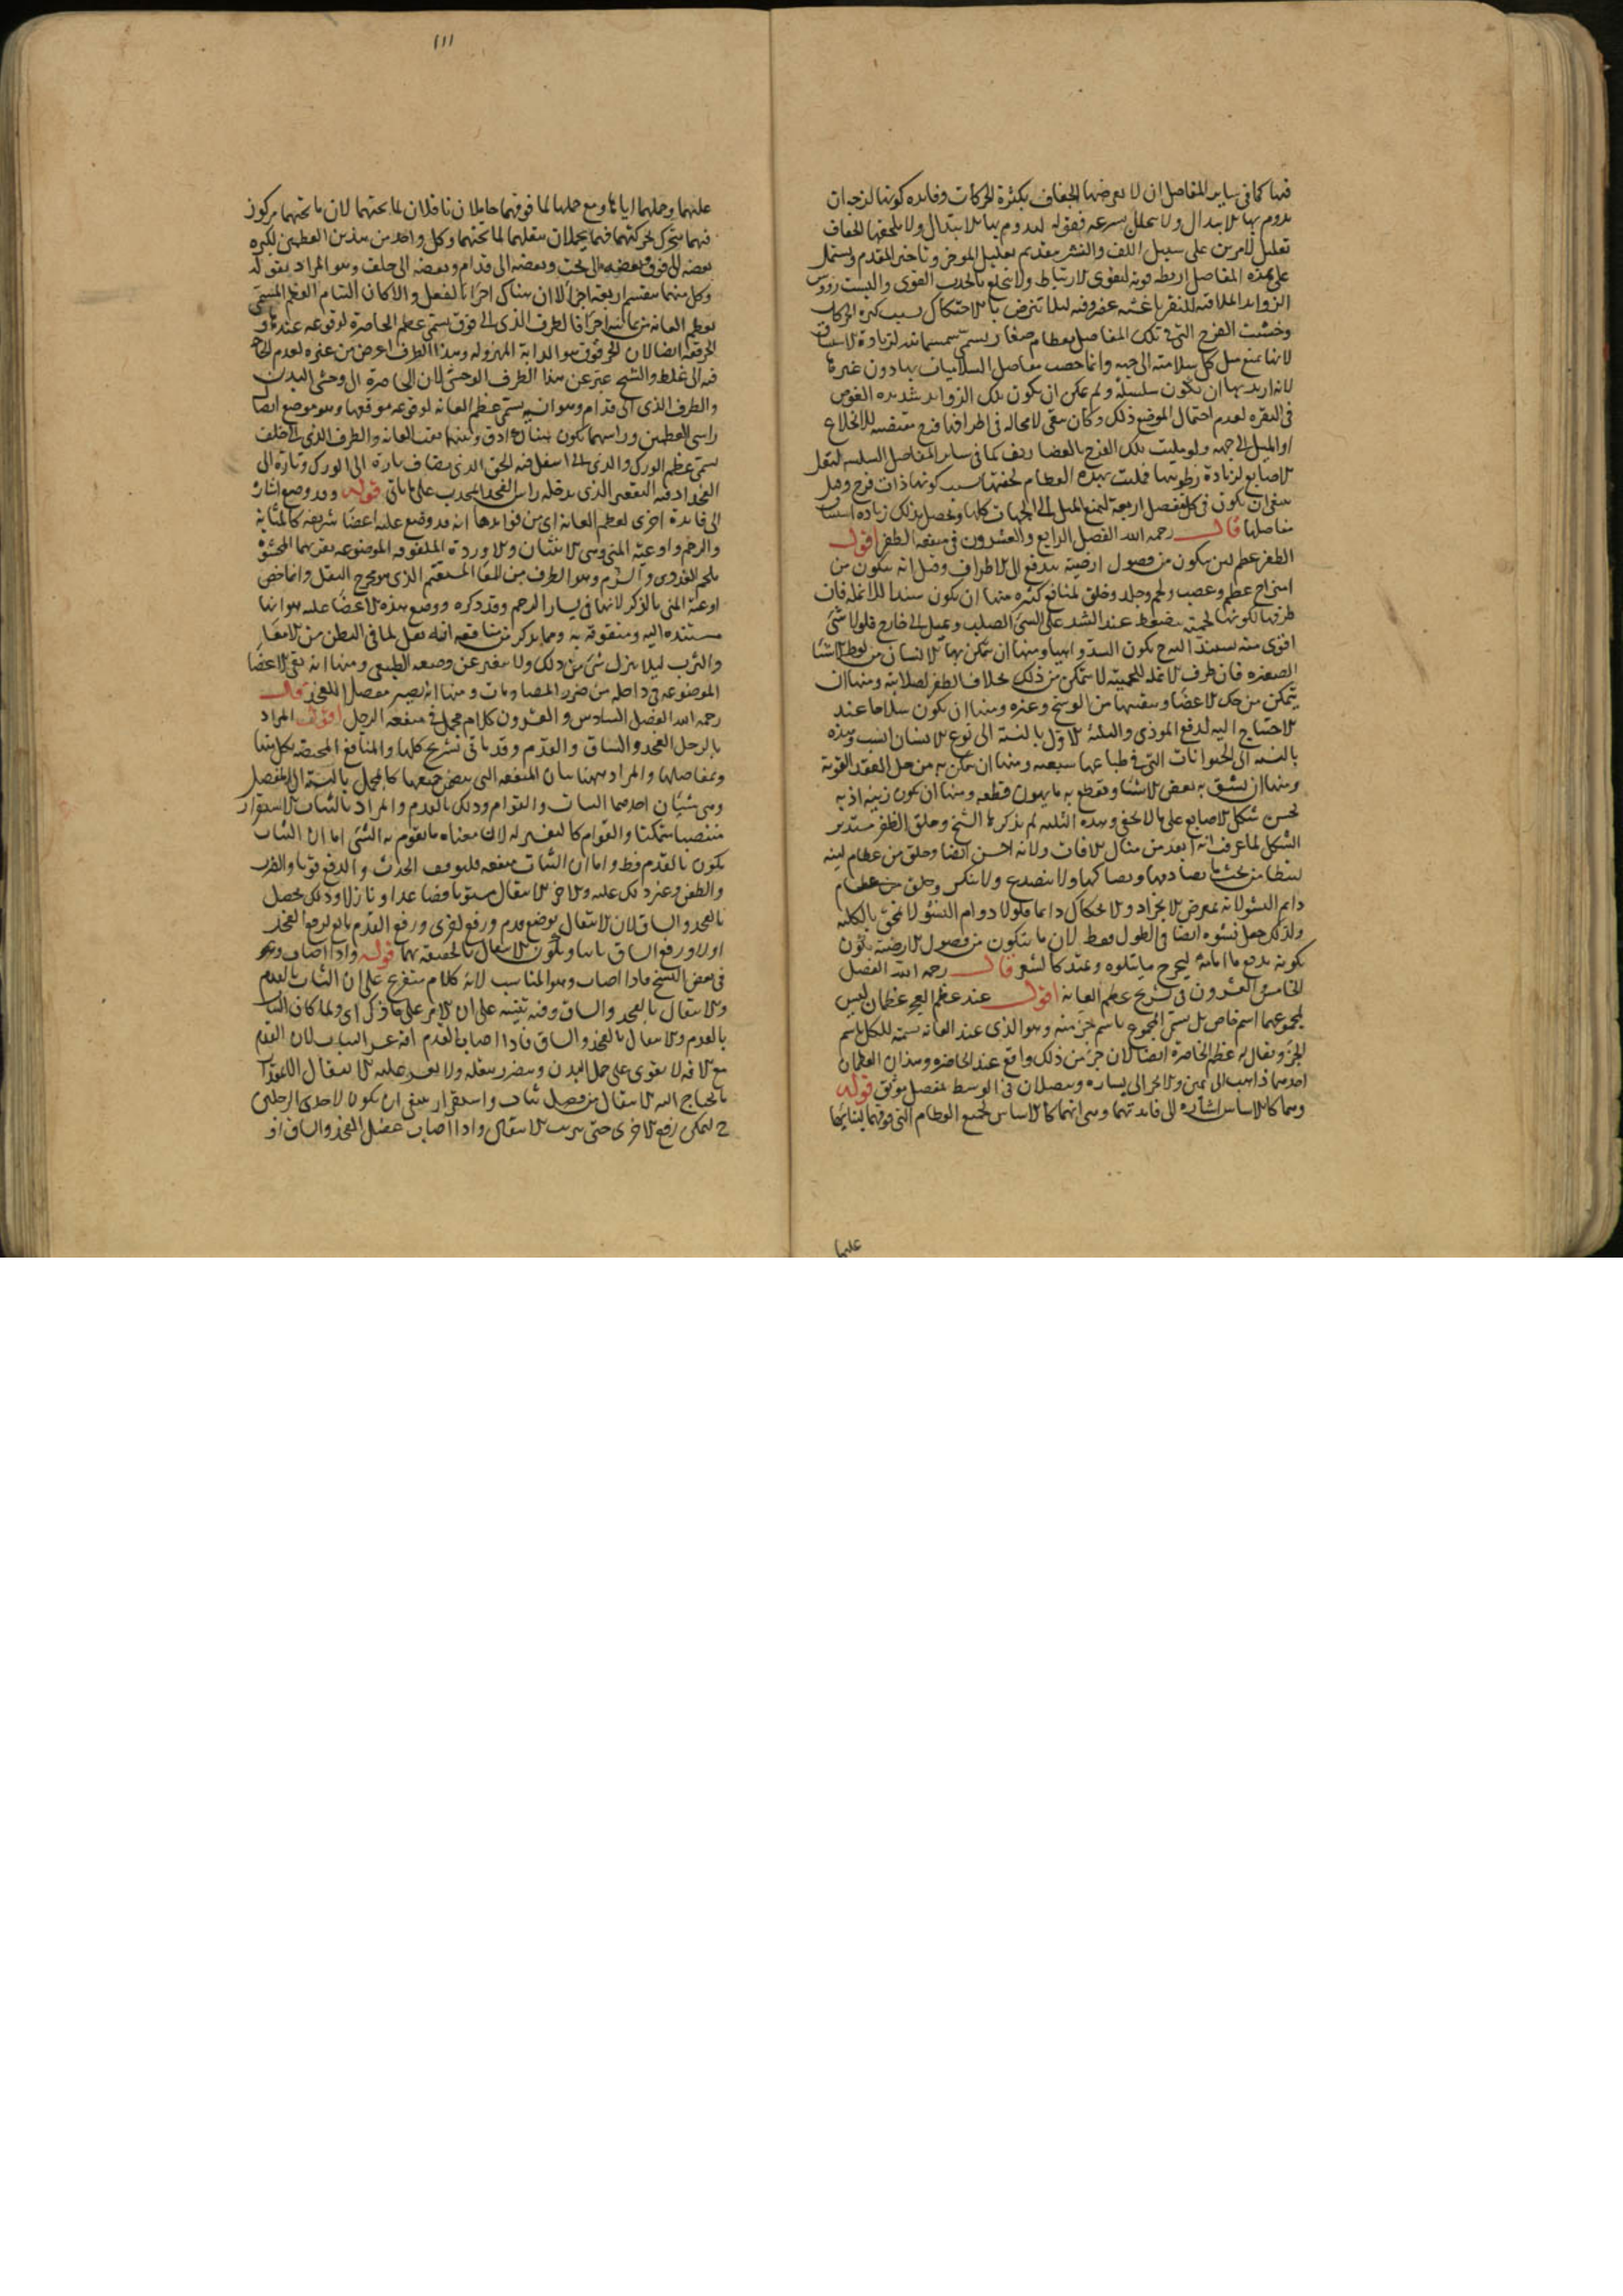 فيها كما في ساير المفاصل ان لا يعرضها الجفاف بكثرة الحركات وفايدة كونها لزجة ان
يدوم بها الابتدال ولا يتحلل بسرعة فقوله ليدوم بها الابتدال ولا يلحقها الجفاف
تعليل لامرين على سبيل اللف والنشر بتقديم تعليل الموخر وتاخير المقدم ويشتمل
على هذه المفاصل اربطة قوية لتقوى الارتباط ولا تنخلع بالجذب القوى والبست رؤوس
الزوايد الملاقية للنقر باغشية غضروفية ليلا تترضض بالاحتكاك بسبب كثرة الحركات
وحشيت الفرج التي في تلك المفاصل بعظام صغار يسمى سمسمانية لزيادة الاستيثاق
لانها تمنع ميل كل سلامية الى جهة وانما خصص مفاصل السلاميات بها دون غيرها
لانه اريد بها ان تكون سلسلة ولم يمكن ان يكون تلك الزوايد شديدة الغوص
في النقرة لعدم احتمال الموضع ذلك وكان يبقى لا محالة في اطرافها فرج مقتضية للانخلاع
او الميل الى جهة ولو مليت تلك الفرج بالغضاريف كما في ساير المفاصل السلسة لثقل
الاصابع لزيادة رطوبتها فمليت بهذه العظام لخفتها بسبب كونها ذات فرج وقيل
ينبغي ان يكون في كل مفصل اربعة لتمنع الميل الى الجهات كلها ويحصل بذلك زيادة استيثاق
مفاصلها قال رحمه الله الفصل الرابع والعشرون في منفعة الظفر اقول
الظفر عظم لين يتكون من فضول ارضية تندفع الى الاطراف وقيل انه يتكون من
امتزاج عظم وعصب ولحم وجلد وخلق لمنافع كثيرة منها ان يكون سندا للانملة فان
طرفها لكونها لحمية ينضغط عند الشد على الشيء الصلب ويميل الى خارج فلولا شيء
اقوى منه يستند اليه ح يكون الشد واهيا ومنها ان يتمكن بها الانسان من لقط الاشيا
الصغيرة فان طرف الانملة للحميته لا يتمكن من ذلك بخلاف الظفر لصلابته ومنها ان
يتمكن من حك الاعضا وتنقيتها من الوسخ وغيره ومنها ان يكون سلاحا عند
الاحتياج اليه لدفع الموذى والثلثة الاول بالنسبة الى نوع الانسان انسب وهذه
بالنسبة الى الحيوانات التي في طباعها سبعية ومنها ان يتمكن به من حل العقد القوية
ومنها ان يشق به بعض الاشيا ويقطع به ما يهون قطعه ومنها ان يكون زينة اذ به
يحسن شكل الاصابع على ما لا يخفى وهذه الثلثة لم يذكرها الشيخ وخلق الظفر مستدير
الشكل لما عرفت انه ابعد من منال الافات ولانه احسن ايضا وخلق من عظام لينة
ليتطامن تحت ما يصادمها ويصاكها ولا ينصدع ولا ينكسر وخلق
دايم النشو لانه بمعرض الانجراد والانحكاك دايما فلولا دوام النشو لانمحق بالكلية
ولذلك جعل نشوه ايضا في الطول فقط لان ما يتكون من فضول الارضية يكون
تكونه بدفع ما امامه ليخرج ما يتلوه وعند كالشعر قال رحمه الله الفصل
الخامس والعشرون في تشريح عظم العانة اقول عند عظم العجز عظمان ليس
لمجموعهما اسم خاص بل يسمى المجموع باسم جزء منه وهو الذي عند العانة تسمية للكل باسم
الجزء ويقال له عظم الخاصرة ايضا لان جزء من ذلك واقع عند الخاصرة وهذان العظمان
احدهما ذاهب الى يمين والاخر الى يساره ويتصلان في الوسط بمفصل موثق قوله
وهما كالاساس اشارة الى فايدتهما وهي انهما كالاساس لجميع العظام التي فوقهما لبنائها
عليها
١١١
عليهما وحملهما اياها ومع حملها لما فوقهما حاملان ناقلان لما تحتهما لان ما تحتهما مركوز
فيهما يتحرك بحركتهما فهما يحملان بنقلهما لما تحتهما وكل واحد من هذين العظمين لكبره
بعضه الى فوق وبعضه الى تحت وبعضه الى قدام وبعضه الى خلف وهو المراد بقوله
وكل منهما ينقسم اربعة اجزا لا ان هناك اجزاء بالفعل والا لكان التيام العظم المسمى
بعظم العانة من ثمانية اجزا فالطرف الذي الى فوق يسمى عظم الخاصرة لوقوعه عندها و
الحرقفة ايضا لان الحرقوق هو الدابة المهزولة وهذا الطرف اعرض من غيره لعدم الحاجة
فيه الى غلظ والشيخ عبر عن هذا الطرف الوحشي لان الخاصرة الى وحشي البدن
والطرف الذي الى قدام وهو انسيه يسمى عظم العانة لوقوعه موقعها وهو موضع اتصال
راسي العظمين وراسهما يكون هناك ادق وبينهما ثقب العانة والطرف الذي الى خلف
يسمى عظم الورك والذي الى اسفل فيه الحق الذي يضاف تارة الى الورك وتارة الى
الفخذ اذ فيه التقعير الذي يدخله راس الفخذ المحدب على ما ياتي قوله وقد وضع اشارة
الى فايدة اخرى لعظم العانة اى من فوايدها انه قد وضع عليه اعضا شريفة كالمثانة
والرحم واوعية المنى وهي الانثيان والاوردة الملفوفة الموضوعة بقربهما المحشوة
بلحم الغددى والسرم وهو الطرف من المعا المستقيم الذي هو مخرج الثفل وانما خص
اوعية المنى بالذكر لانها في يسار الرحم وقد ذكره ووضع هذه الاعضا عليه هو انها
مستندة اليه ومتقوية به ومما يذكر من منافعه انه يقل لما في البطن من الامعا
والثرب ليلا ينزل شيء من ذلك ولا يتغير عن وضعه الطبيعي ومنها انه يقى الاعضا
الموضوعة في داخله من ضرر المصادمات ومنها انه يصير مفصلا للفخذ قال
رحمه الله الفصل السادس والعشرون كلام مجمل في منفعة الرجل اقول المراد
بالرجل الفخذ والساق والقدم وقد ياتي تشريح كلها والمنافع المختصة بكل منها
ومفاصلها والمراد ههنا بيان المنفعة التي يتضمن جميعها كالمجمل بالنسبة الى المفصل
وهي شيئان احدهما الثبات والقوام وذلك بالقدم والمراد بالثبات الاستقرار
منتصبا متمكنا والقوام كالتفسير له لان معناه ما يقوم به الشيء اما ان الثبات
يكون بالقدم فظ واما ان الثبات منفعة فللوقوف الحدث والدفع قويا والضرب
والطعن وغير ذلك عليه والاخر الانتقال مستويا وصاعدا ونازلا وذلك يحصل
بالفخذ والساق لان الانتقال بوضع قدم ورفع اخرى ورفع القدم تابع لرفع الفخذ
اولا ورفع الساق ثانيا ويكون الانتقال بالحقيقة بهما قوله واذا اصاب وهو
في بعض النسخ فاذا اصاب وهو المناسب لانه كلام متفرع على ان الثبات بالقدم
والانتقال بالفخذ والساق وفيه تنبيه على ان الامر على ما ذكر اى ولما كان الثبات
بالقدم والانتقال بالفخذ والساق فاذا اصاب القدم افة عسر الثبات لان القدم
مع الافة لا يقوى على حمل البدن ويتضرر بثقله ولا يعسر عليه الانتقال الا بمقدار
ما يحتاج اليه الانتقال من فضل ثبات واستقرار ينبغي ان يكون لاحدى الرجلين
ح ليمكن رفع الاخرى حتى يترتب الانتقال واذا اصاب عضل الفخذ والساق افة